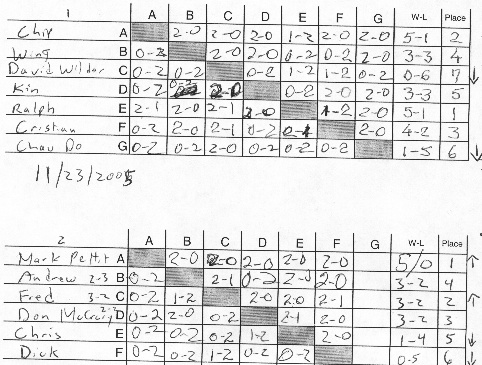 1 A B C D E F G W-L Place
Chip A 2-0 2-0 2-0 1-2 2-0 2-0 5-1 2
Wing B 0-2 2-0 2-0 0-2 0-2 2-0 3-3 4
David Wilder C 0-2 0-2 0-2 1-2 1-2 0-2 0-6 7 ↓
Kin D 0-2 0-2 2-0 0-2 2-0 2-0 3-3 5
Ralph E 2-1 2-0 2-1 2-0 1-2 2-0 5-1 1
Cristian F 0-2 2-0 2-1 0-2 2-0 4-2 3
Chau Do G 0-2 0-2 2-0 0-2 0-2 0-2 1-5 6 ↓
11/23/2005
2 A B C D E F G W-L Place
Mark Pettit A 2-0 2-0 2-0 2-0 2-0 5/0 1 ↑
Andrew 2-3 B 0-2 2-1 0-2 2-0 2-0 3-2 4
Fred 3-2 C 0-2 1-2 2-0 2-0 2-1 3-2 2 ↑
Don D 0-2 2-0 0-2 2-1 2-0 3-2 3
Chris E 0-2 0-2 0-2 1-2 2-0 1-4 5 ↓
Dick F 0-2 0-2 1-2 0-2 0-2 0-5 6 ↓